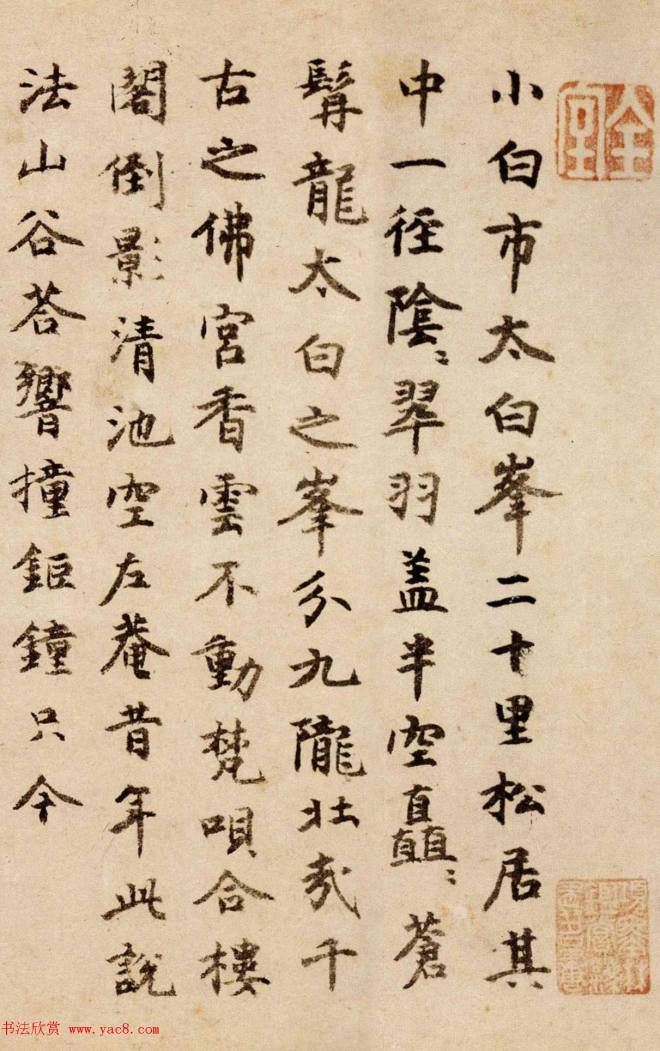 小白市太白峯二十里松居其
中一徑陰〻翠羽盖半空矗〻蒼
髯龍太白之峯分九隴壯哉千
古之佛宮香雲不動梵唄合樓
閣倒影清池空左菴昔年此說
法山谷荅響撞鉅鐘只今
全室
书法欣赏 www.yac8.com